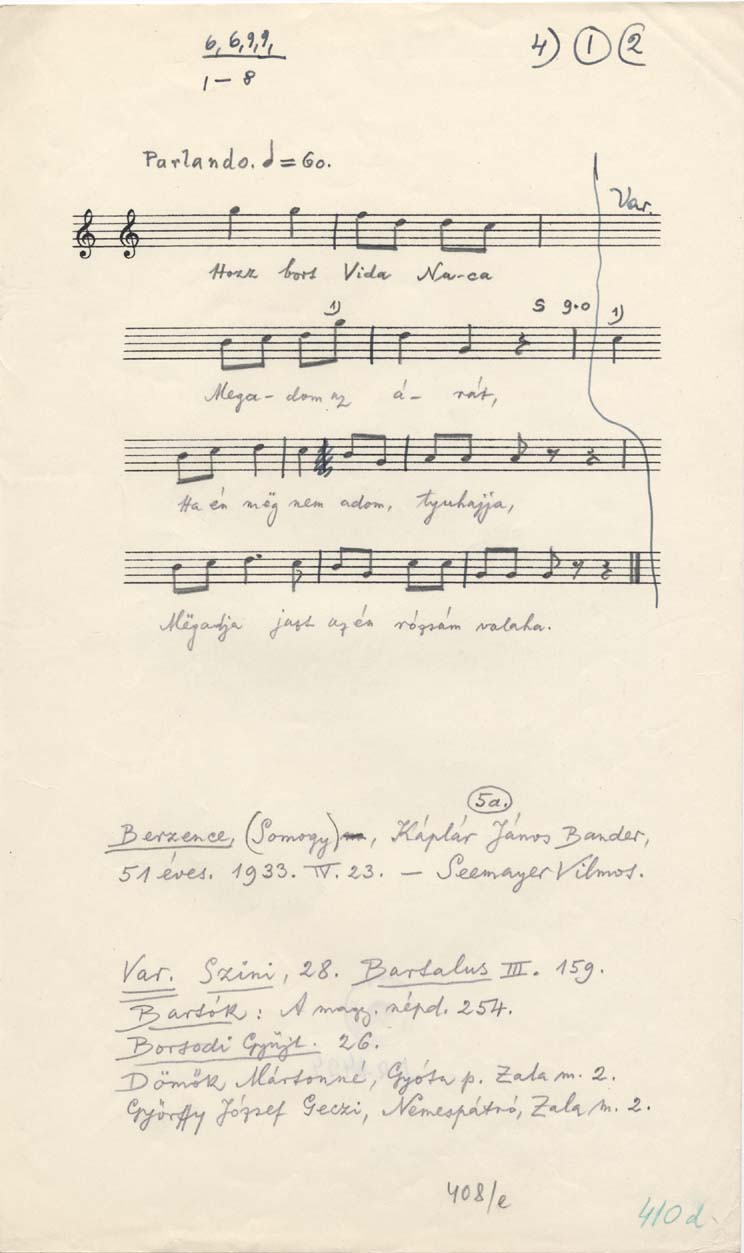 6, 6, 9, 9,
1 – 8
4) 1 2
Parlando. ♩ = 60.
Var.
Hozz bort Vida Na-ca
1) S 9.0 1)
Mega- dom az á- rát,
Ha én még nem adom, tyuhajja,
Mëgadja jazt az én rózsám valaha.
5a.
Berzence, (Somogy), Káplár János Bander,
51 éves. 1933. IV. 23. – Seemayer Vilmos.
Var. Szini, 28. Bartalus III. 159.
Bartók: A magy. népd. 254.
Borsodi Gyűjt. 26.
Dömők Mártonné, Gyóta p. Zala m. 2.
Györffy József Geczi, Nemespátró, Zala m. 2.
408/e
410 d.